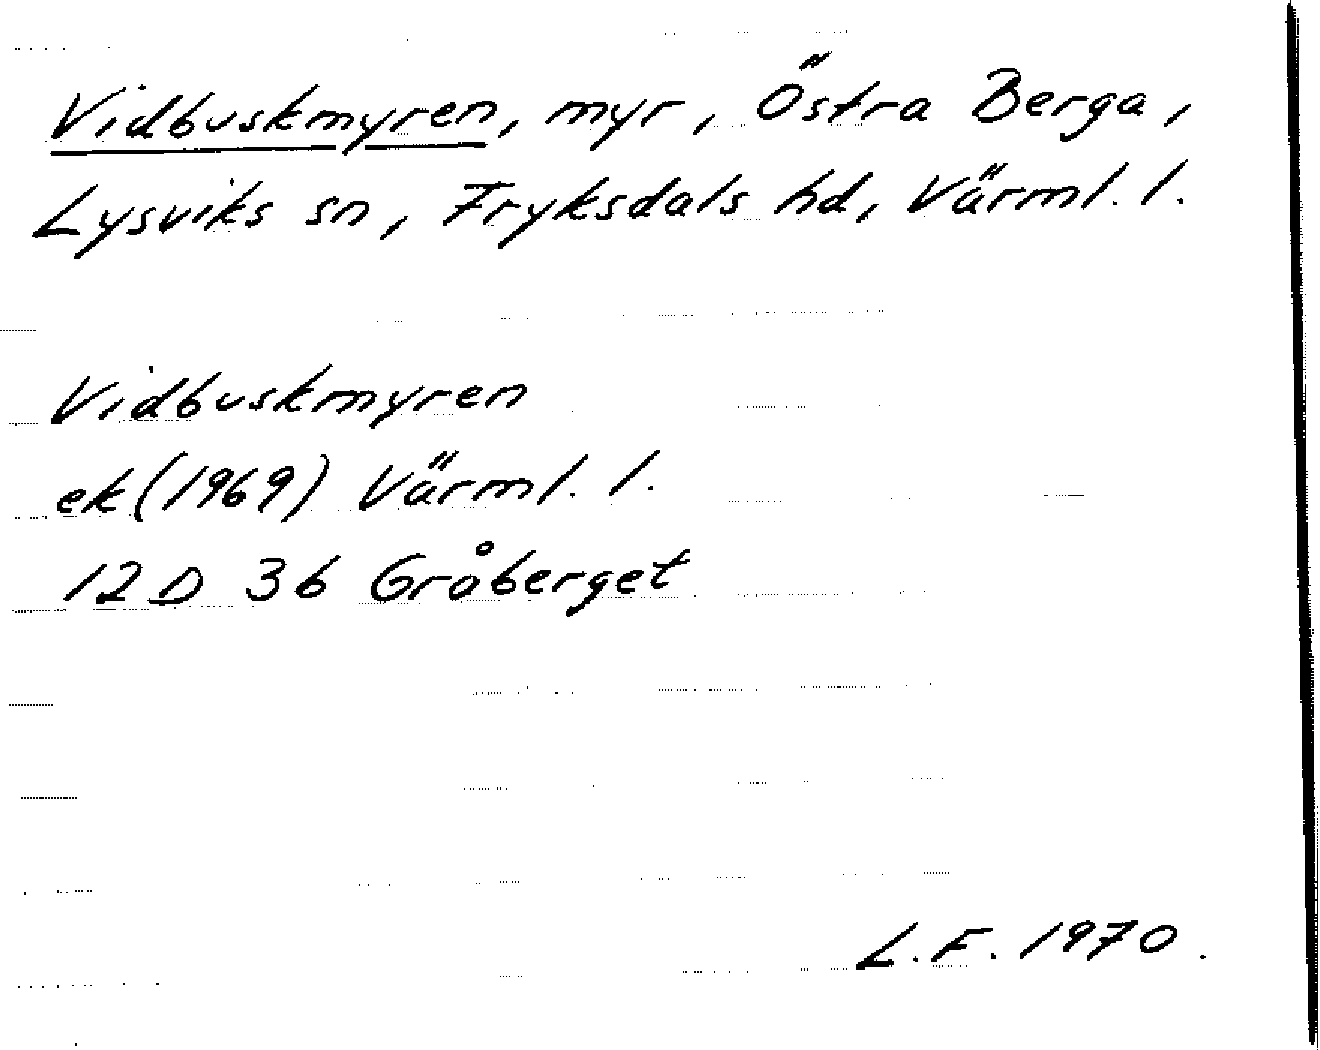 Vidbuskmyren, myr, Östra Berga,
Lysviks sn, Fryksdals hd, Värml. l.
Vidbuskmyren
ek (1969) Värml. l.
12 D 3b Gråberget
L.F. 1970.